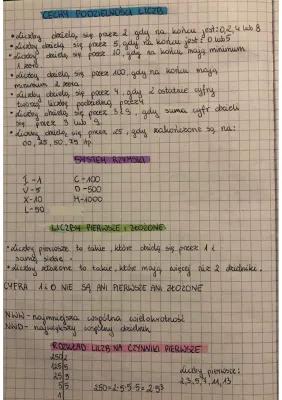 CECHY PODZIELNOŚCI LICZB
• Liczby dzielą się przez 2, gdy na końcu jest: 0,2,4 lub 8
• Liczby dzielą się przez 5, gdy na końcu jest: 0 lub 5
• Liczby dzielą się przez 10, gdy na końcu mają minimum
1 zero.
• Liczby dzielą się przez 100, gdy na końcu mają
minimum 2 zera.
• Liczby dzielą się przez 4, gdy 2 ostatnie cyfry
tworzą liczbę podzielną przez 4
• Liczby dzielą się przez 3 i 9, gdy suma cyfr dzieli
się przez 3 lub 9.
• Liczby dzielą się przez 25, gdy zakończone są na:
00, 25, 50, 75 np.
SYSTEM RZYMSKI
I - 1 C - 100
V - 5 D - 500
X - 10 M - 1000
L - 50
LICZBY PIERWSZE I ZŁOŻONE
• Liczby pierwsze to takie, które dzielą się przez 1 i
samą siebie.
• Liczby złożone to takie, które mają więcej niż 2 dzielniki.
CYFRA 1 i 0 NIE SĄ ANI PIERWSZE ANI ZŁOŻONE
NWW - najmniejsza wspólna wielokrotność
NWD - największy wspólny dzielnik
ROZKŁAD LICZB NA CZYNNIKI PIERWSZE
250|2
125|5
25|5
5|5 250 = 2·5·5·5 = 2·5³
1
liczby pierwsze:
2,3,5,7,11,13